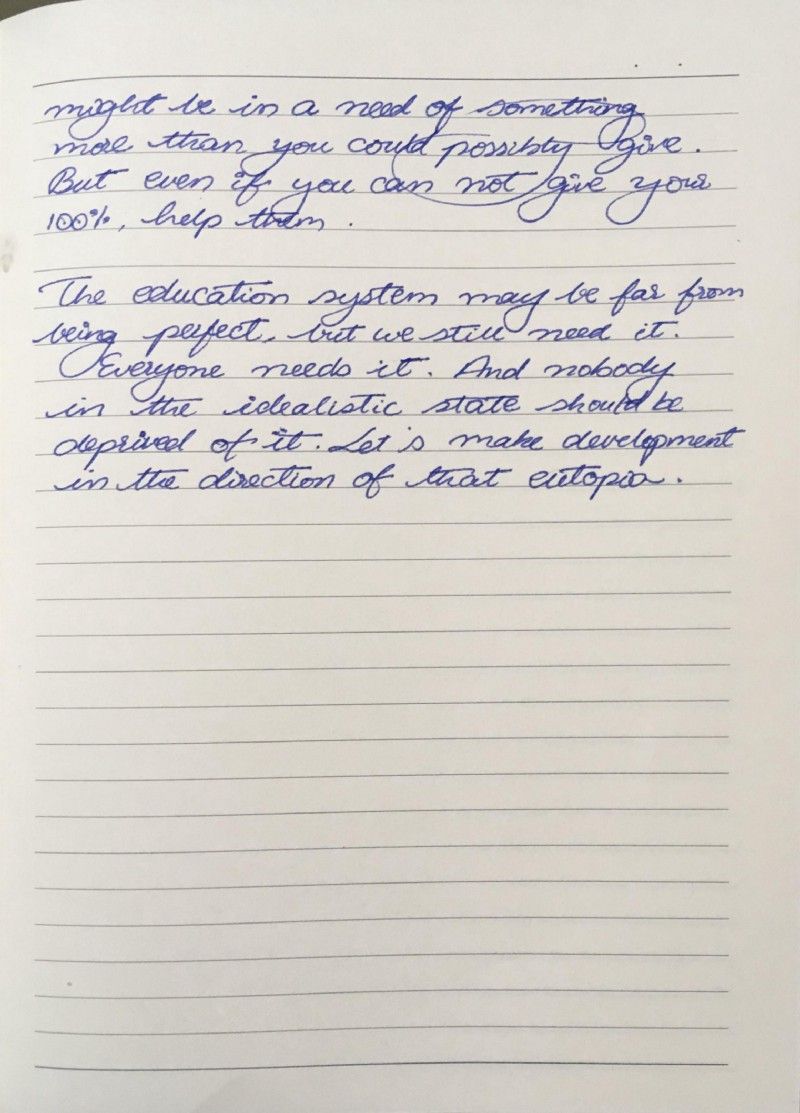 might be in a need of something
more than you could possibly give.
But even if you can not give your
100%, help them.
The education system may be far from
being perfect, but we still need it.
Everyone needs it. And nobody
in the idealistic state should be
deprived of it. Let's make development
in the direction of that eutopia.